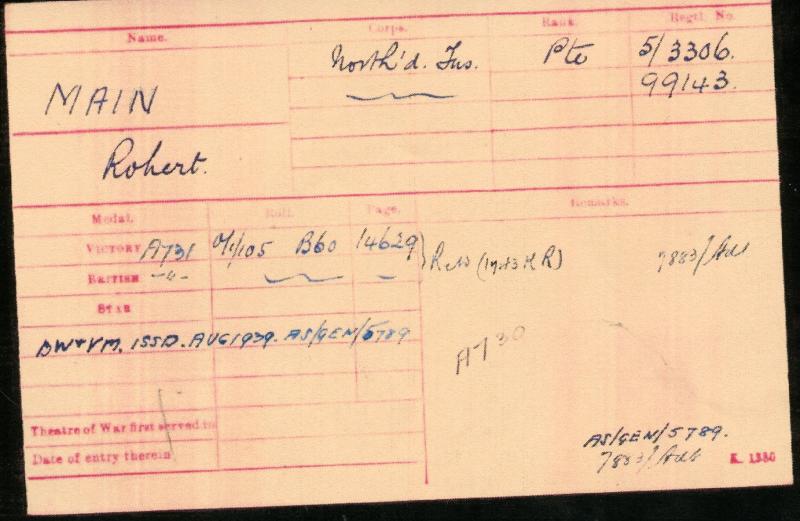 Name.
Corps.
Rank.
Regtl. No.
MAIN
North'd. Fus.
Pte
5/3306.
99143.
Robert.
Medal.
Roll.
Page.
Remarks.
VICTORY A731 O/1/105 B60 14629
7883/Adt
BRITISH -"-
STAR
BW & VM. ISSD. AUG 1939. AS/GEN/5789
A730
Theatre of War first served in
Date of entry therein
AS/GEN/5789.
7883/Adt
K. 1380